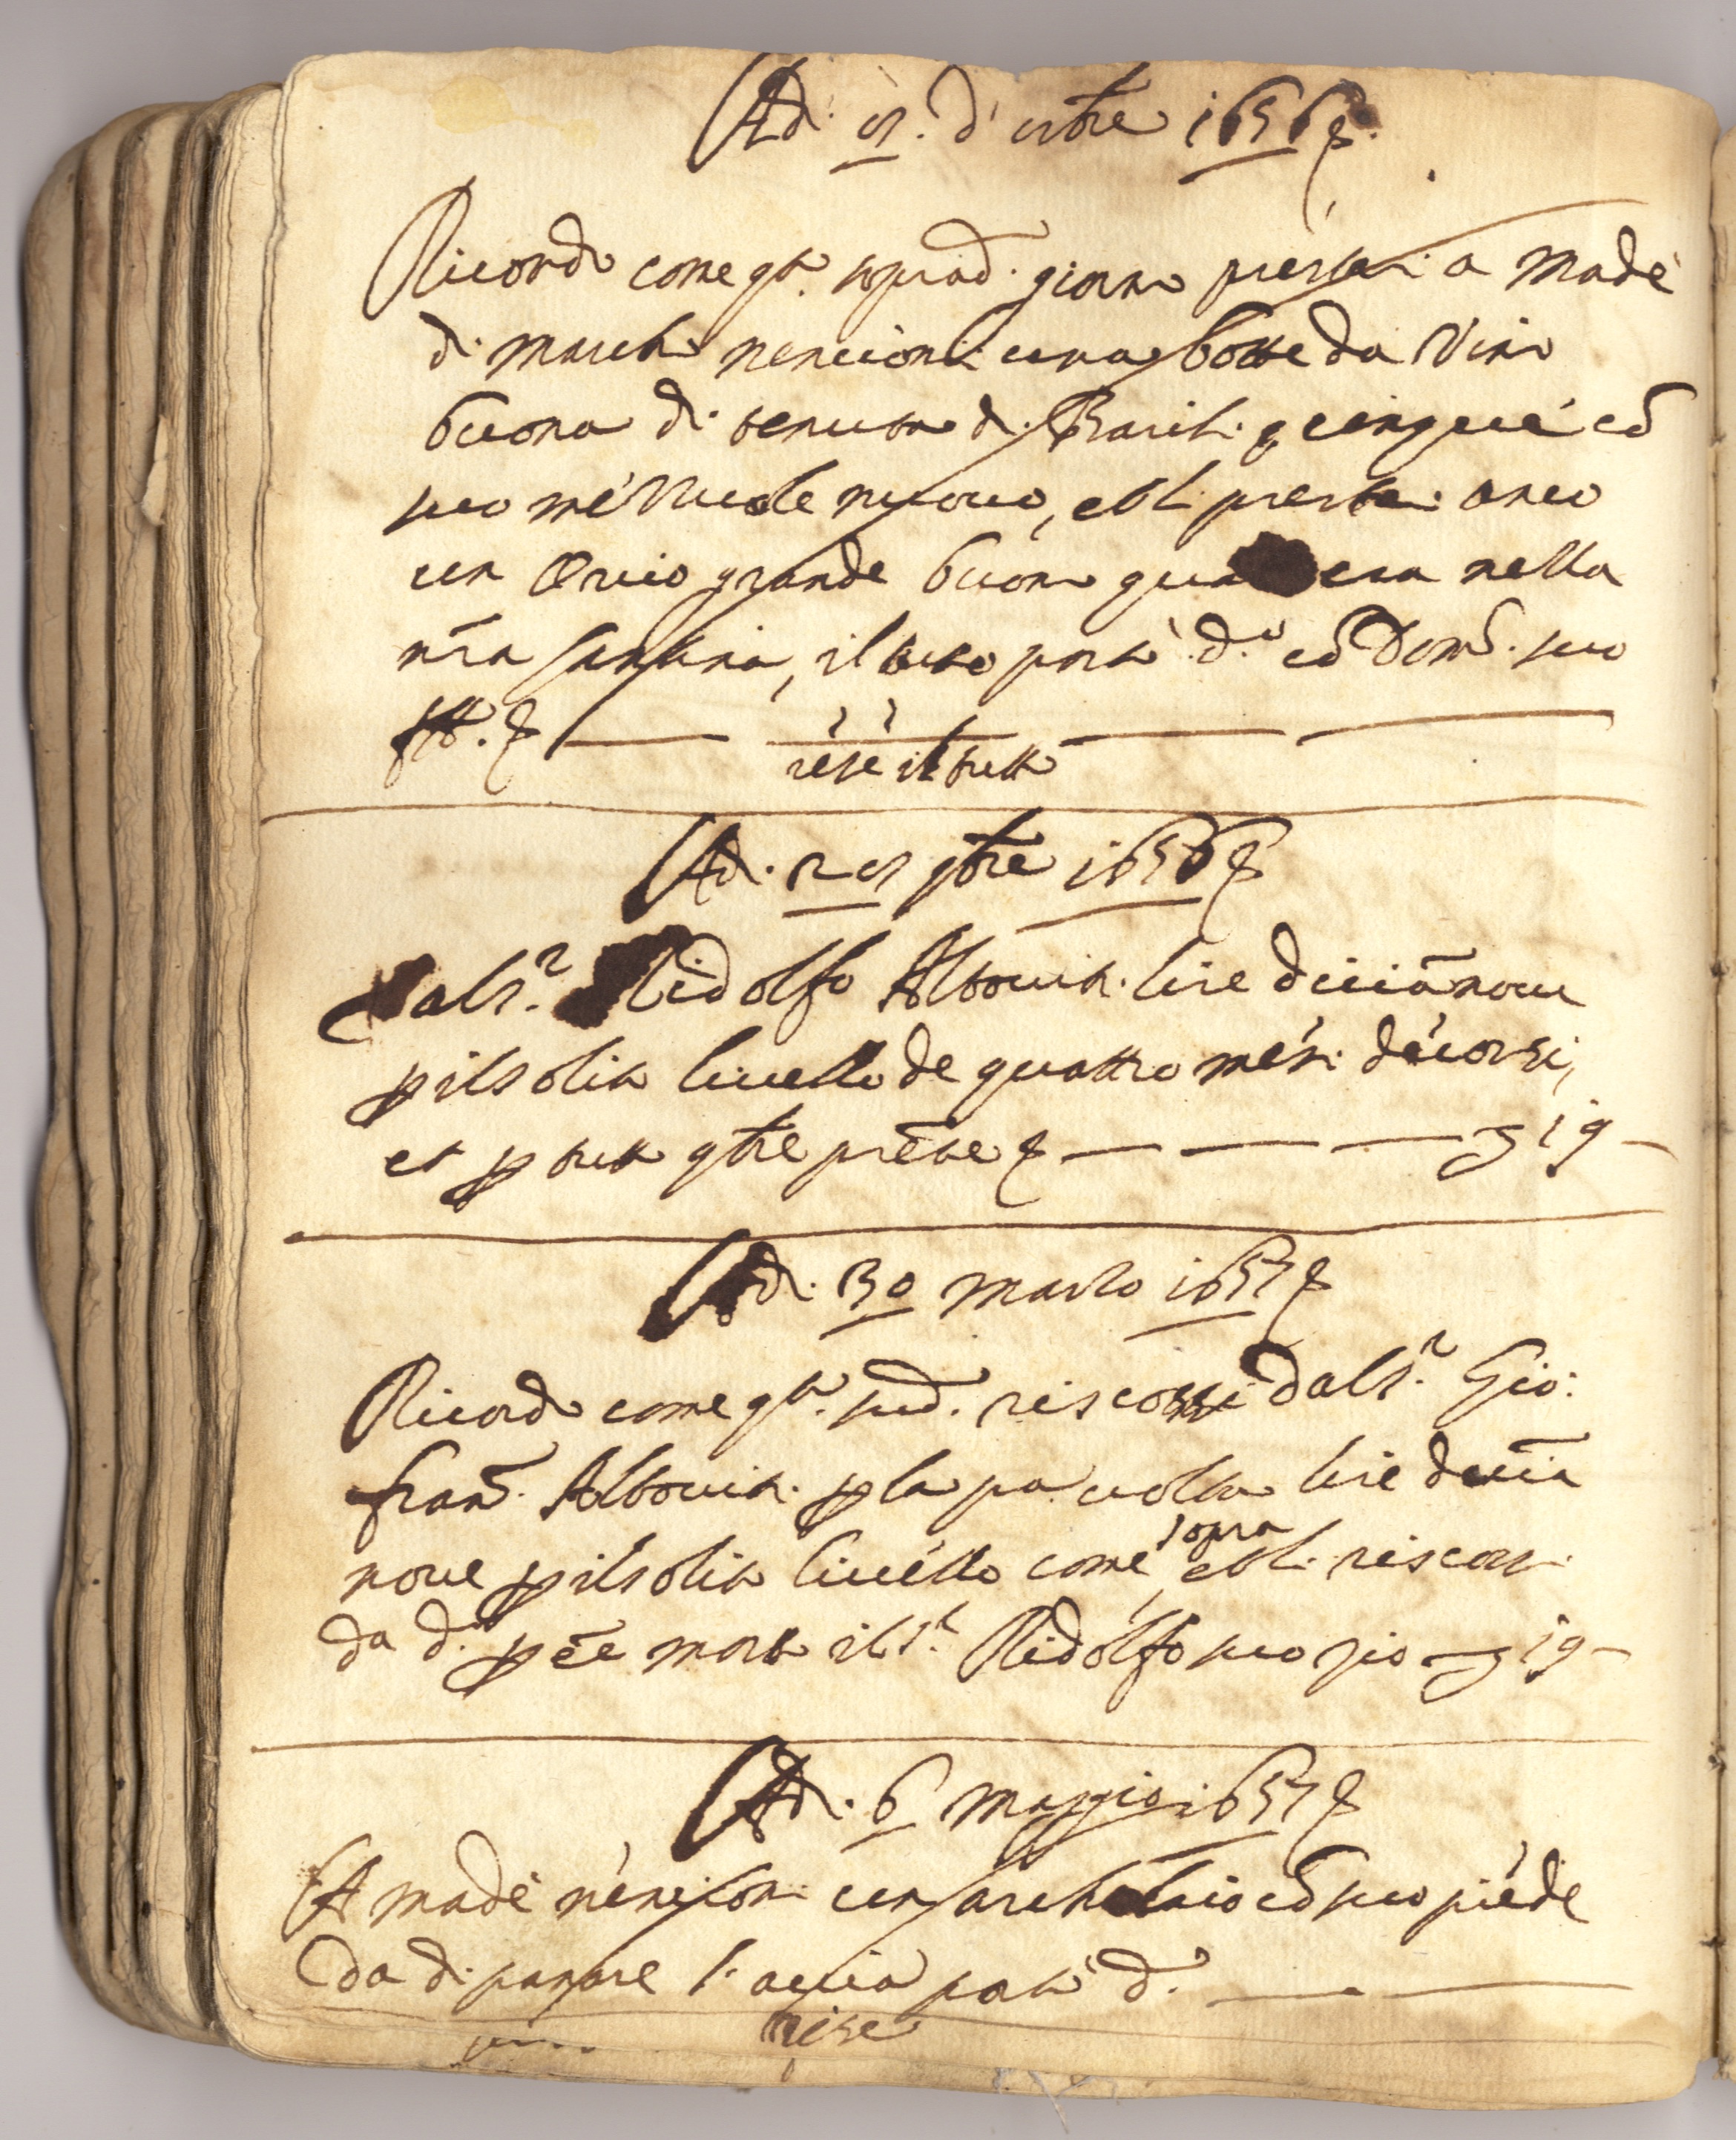 Adi. 9. d'ottbre 1656 &.
Ricordo come qto. soprad. giorno prestai a Madè
di march. nencioni una botte da Vino
buona di tenuta di Barili. cinque cō
suo mé nuovo, et li prestai anco
un Orcio grande buono era nella
nr̄a Cantina, il tutto portò d.o cō Dom.o suo
&
rese il tutto
Adi. 29 9bre 1656 &
Dal S.r Ridolfo Altoviti. lire diciānove
p il solito livello de quattro mesi décorsi,
et p tutto 9bre prēte & — — — 19 —
Adi. 30 Marzo 1657 &
Ricordo come qto. sud. riscossi dal S.r Gio:
Fran.o Altoviti. p la pa volta lire dicia
nove p il solito livello come sopra et li riscossi
da d.o p ēē morto il S.r Ridolfo suo zio — 19 —
Adi. 6 Maggio 1657 &
A madè nencioni un cō suo piede
da di l'acqua portò d.o
rese